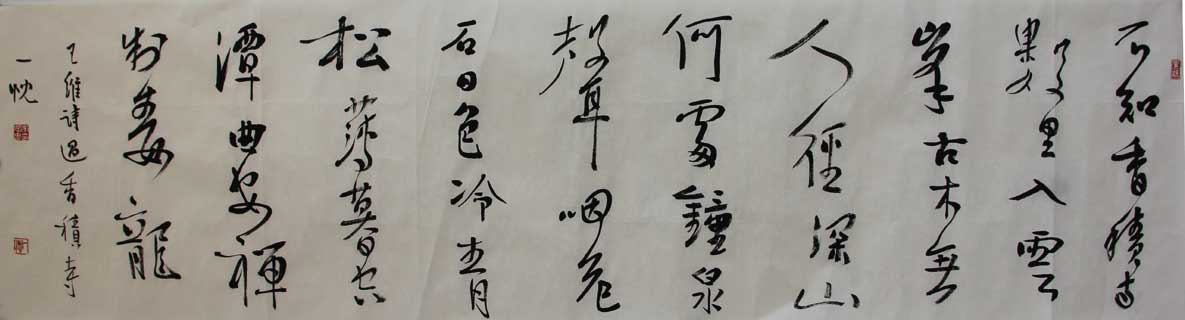 不知香積寺
數里入雲
峯古木無
人徑深山
何處鐘泉
聲咽危
石日色冷青
松薄暮空
潭曲安禪
制毒龍
王維詩過香積寺
一忱